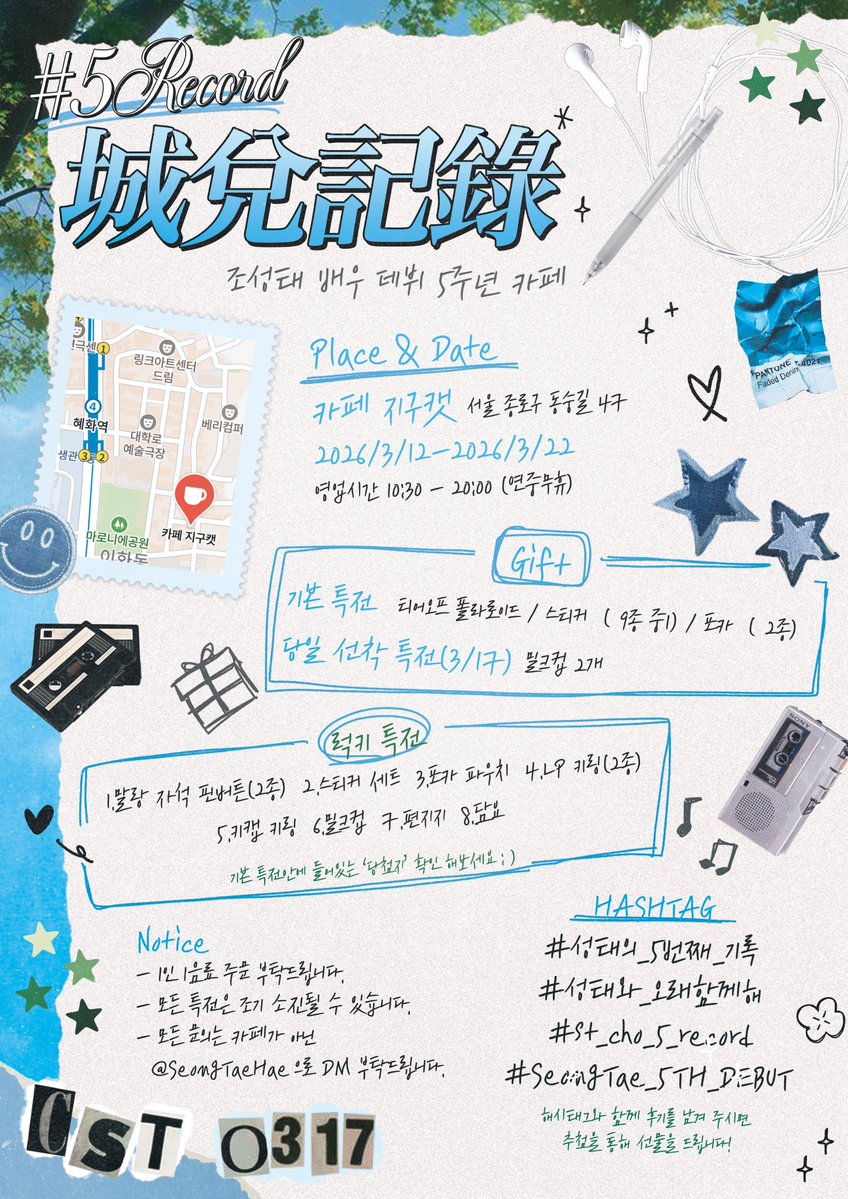 #5Record
城兌記錄
조성태 배우 데뷔 5주년 카페
1
링크아트센터
드림
4
혜화역
대학로
예술극장
베리컴퍼
생관
3 2
마로니에공원
카페 지구캣
이화동
Place & Date
카페 지구캣 서울 종로구 동숭길 47
2026/3/12-2026/3/22
영업시간 10:30 - 20:00 (연중무휴)
PANTONE
4021
Faded Denim
Gift
기본 특전 티어오프 폴라로이드 / 스티커 (9종 중1) / 포카 (2종)
당일 선착 특전(3/17) 밀크컵 2개
럭키 특전
1.말랑 자석 핀버튼(2종) 2.스티커 세트 3.포카 파우치 4.LP 키링(2종)
5.키캡 키링 6.밀크컵 7.편지지 8.담요
기본 특전안에 들어있는 '당첨지' 확인 해보세요 ; )
SONY
Notice
- 1인 1음료 주문 부탁드립니다.
- 모든 특전은 조기 소진될 수 있습니다.
- 모든 문의는 카페가 아닌
@SeongTaeHae 으로 DM 부탁드립니다.
HASHTAG
#성태의_5번째_기록
#성태와_오래함께해
#st_cho_5_record
#SeongTae_5TH_DEBUT
해시태그와 함께 후기를 남겨 주시면
추첨을 통해 선물을 드립니다!
CST 0317